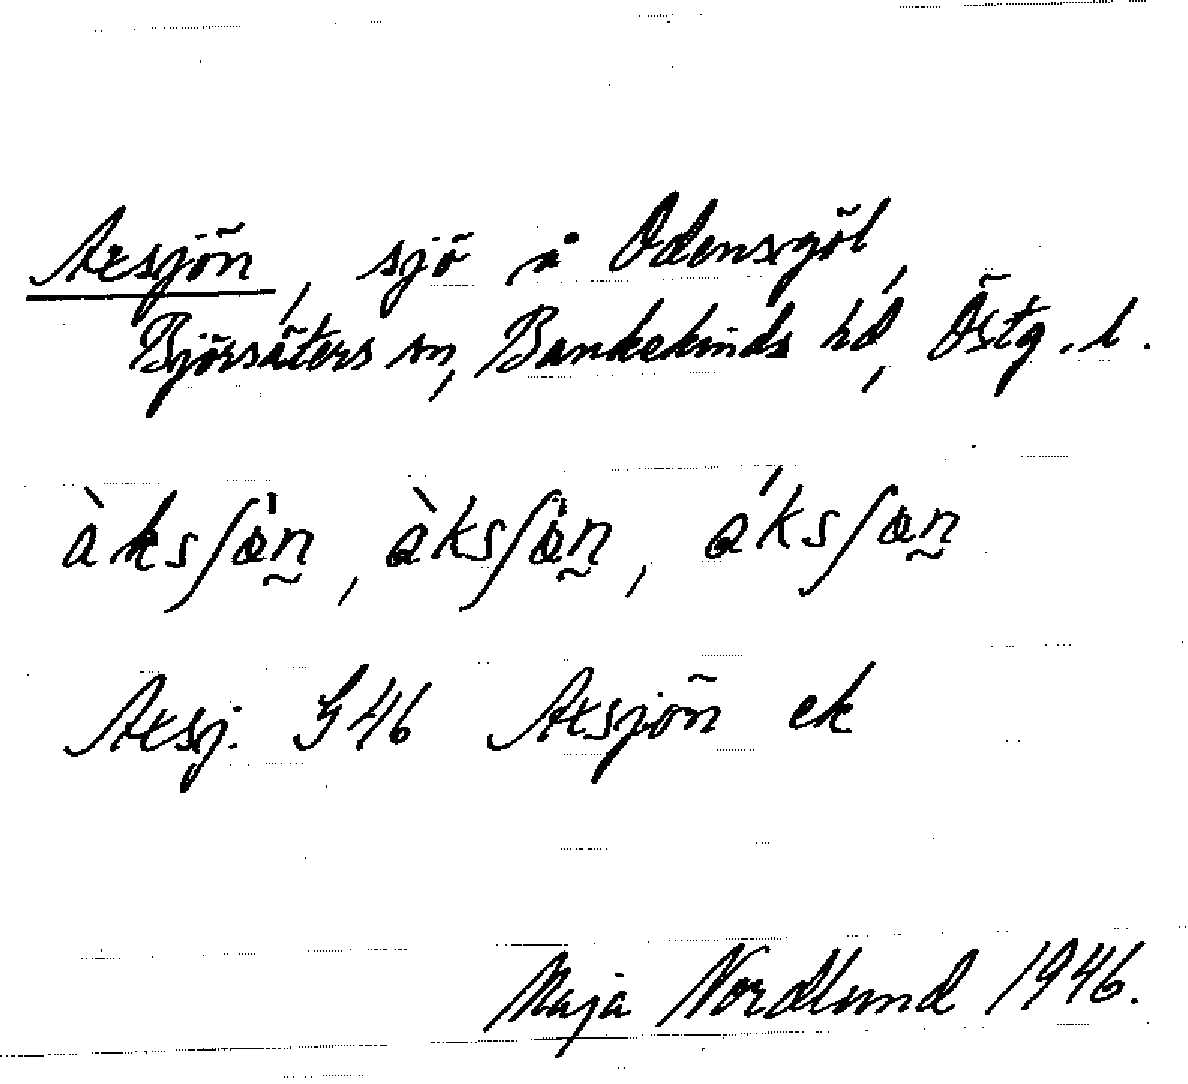 Axsjön, sjö å Odensgöl,
Björsäters sn, Bankekinds hd, Östg. l.
àksʃø̀n̰, àksʃø̀n̰, áksʃøn̰
Axsj. G46 Axsjön ek
Maja Nordlund 1946.